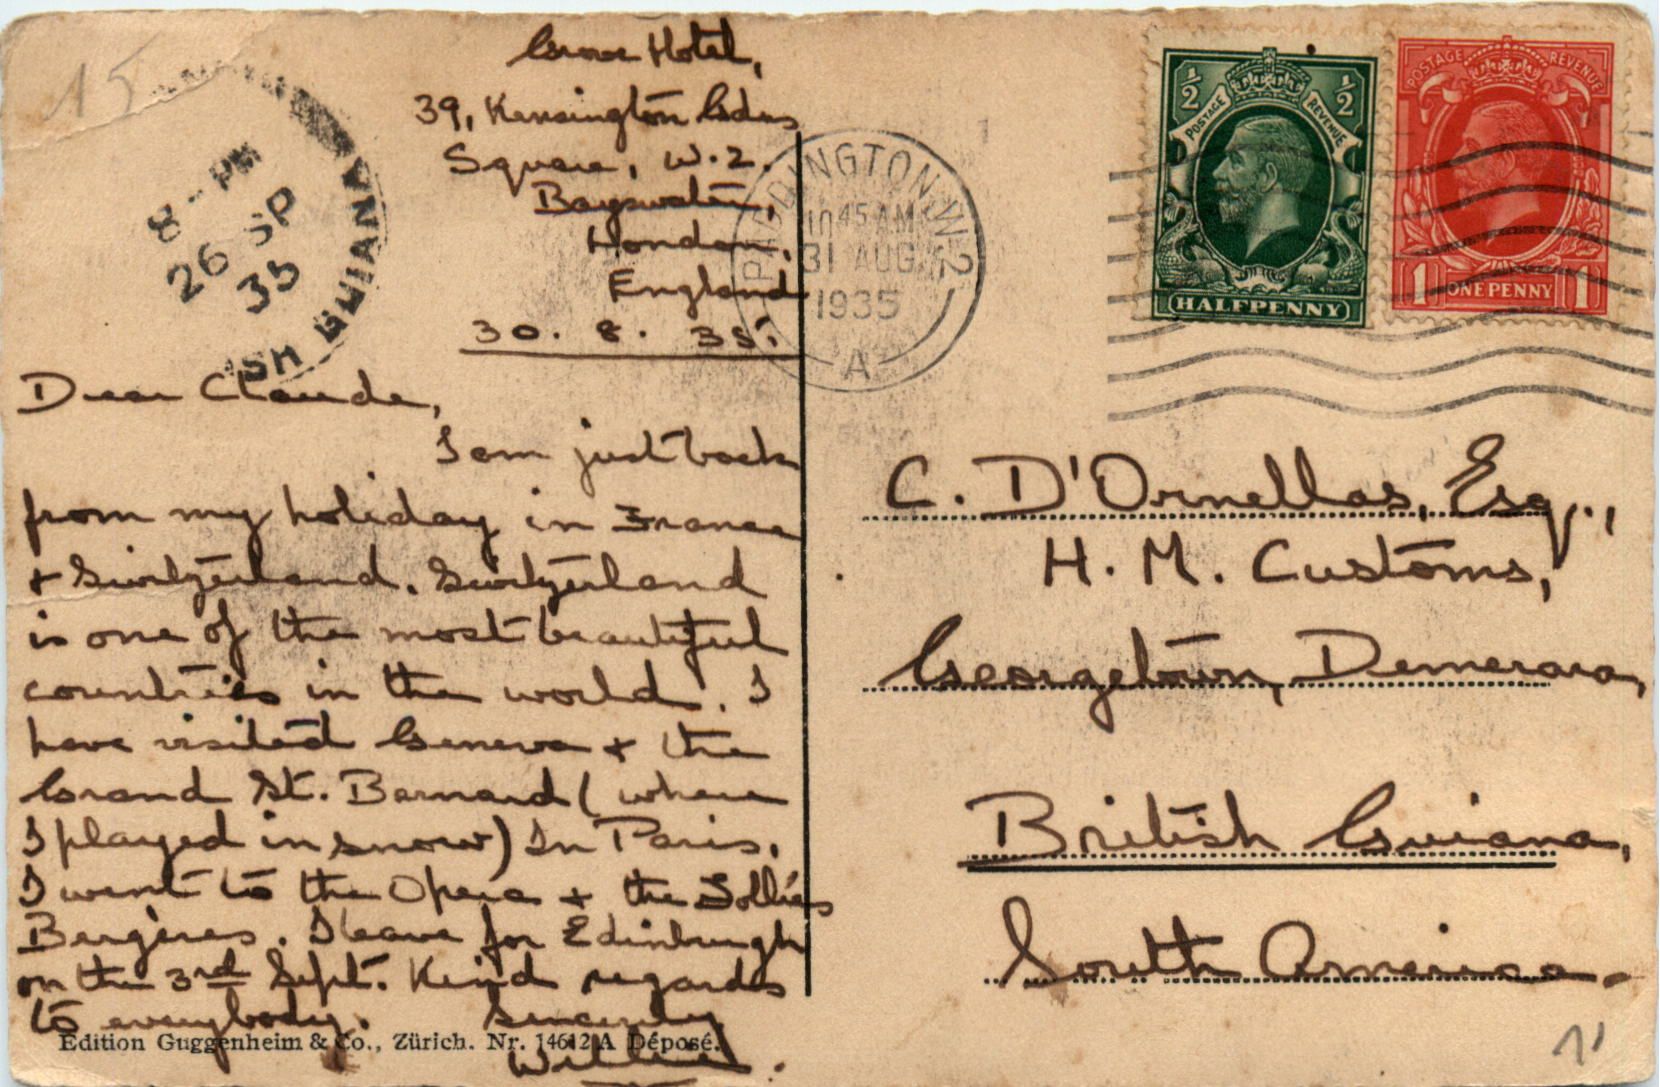 15
Grove Hotel,
39, Kensington Gdns
Square, W.2.
Bayswater,
London.
England
30. 8. 35.
Dear Claude,
I am just back
from my holiday in France
+ Switzerland. Switzerland
is one of the most beautiful
countries in the world. I
have visited Geneva + the
Grand St. Bernard (where
I played in snow) In Paris,
I went to the Opera + the Follies
Bergères. I leave for Edinburgh
on the 3rd Sept. Kind regards
to everybody. Sincerely
Willie.
Edition Guggenheim & Co., Zürich. Nr. 14612 A Déposé.
8 - PM
26 SP
35
ISH GUIANA
PADDINGTON. W.2.
10 45 AM
31 AUG
1935
A
½ ½
POSTAGE REVENUE
HALFPENNY
POSTAGE REVENUE
1 ONE PENNY 1
C. D'Ornellas, Esq.,
H. M. Customs,
Georgetown, Demerara,
British Guiana,
South America.